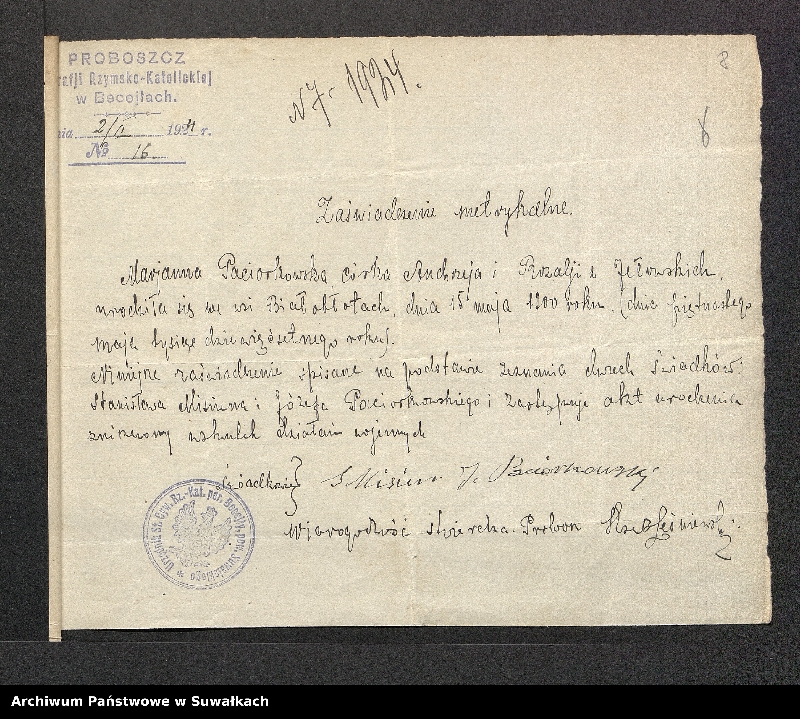 PROBOSZCZ
rafji Rzymsko-Katolickiej
w Becejłach.
nia 2/II 1924 r.
№ 16
N 7. 1924.
8
Zaświadczenie metrykalne.
Marjanna Paciorkowska, córka Andrzeja i Rozalji z Jełowskich,
urodziła się we wsi Białobłotach, dnia 15 maja 1900 roku. (dnia piętnastego
maja tysiąc dziewięćsetnego roku).
Niniejsze zaświadczenie spisane na podstawie zeznania dwóch świadków:
Stanisława Misiuna i Józefa Paciorkowskiego i zastępuje akt urodzenia
zniszczony wskutek działań wojennych
świadkowie} S Misiun J. Paciorkowski
Wiarogodność stwierdza Probon
Urzędnik st. Cyw. Rz.-Kat. par. Becejły, pow. Suwalskiego
Archiwum Państwowe w Suwałkach